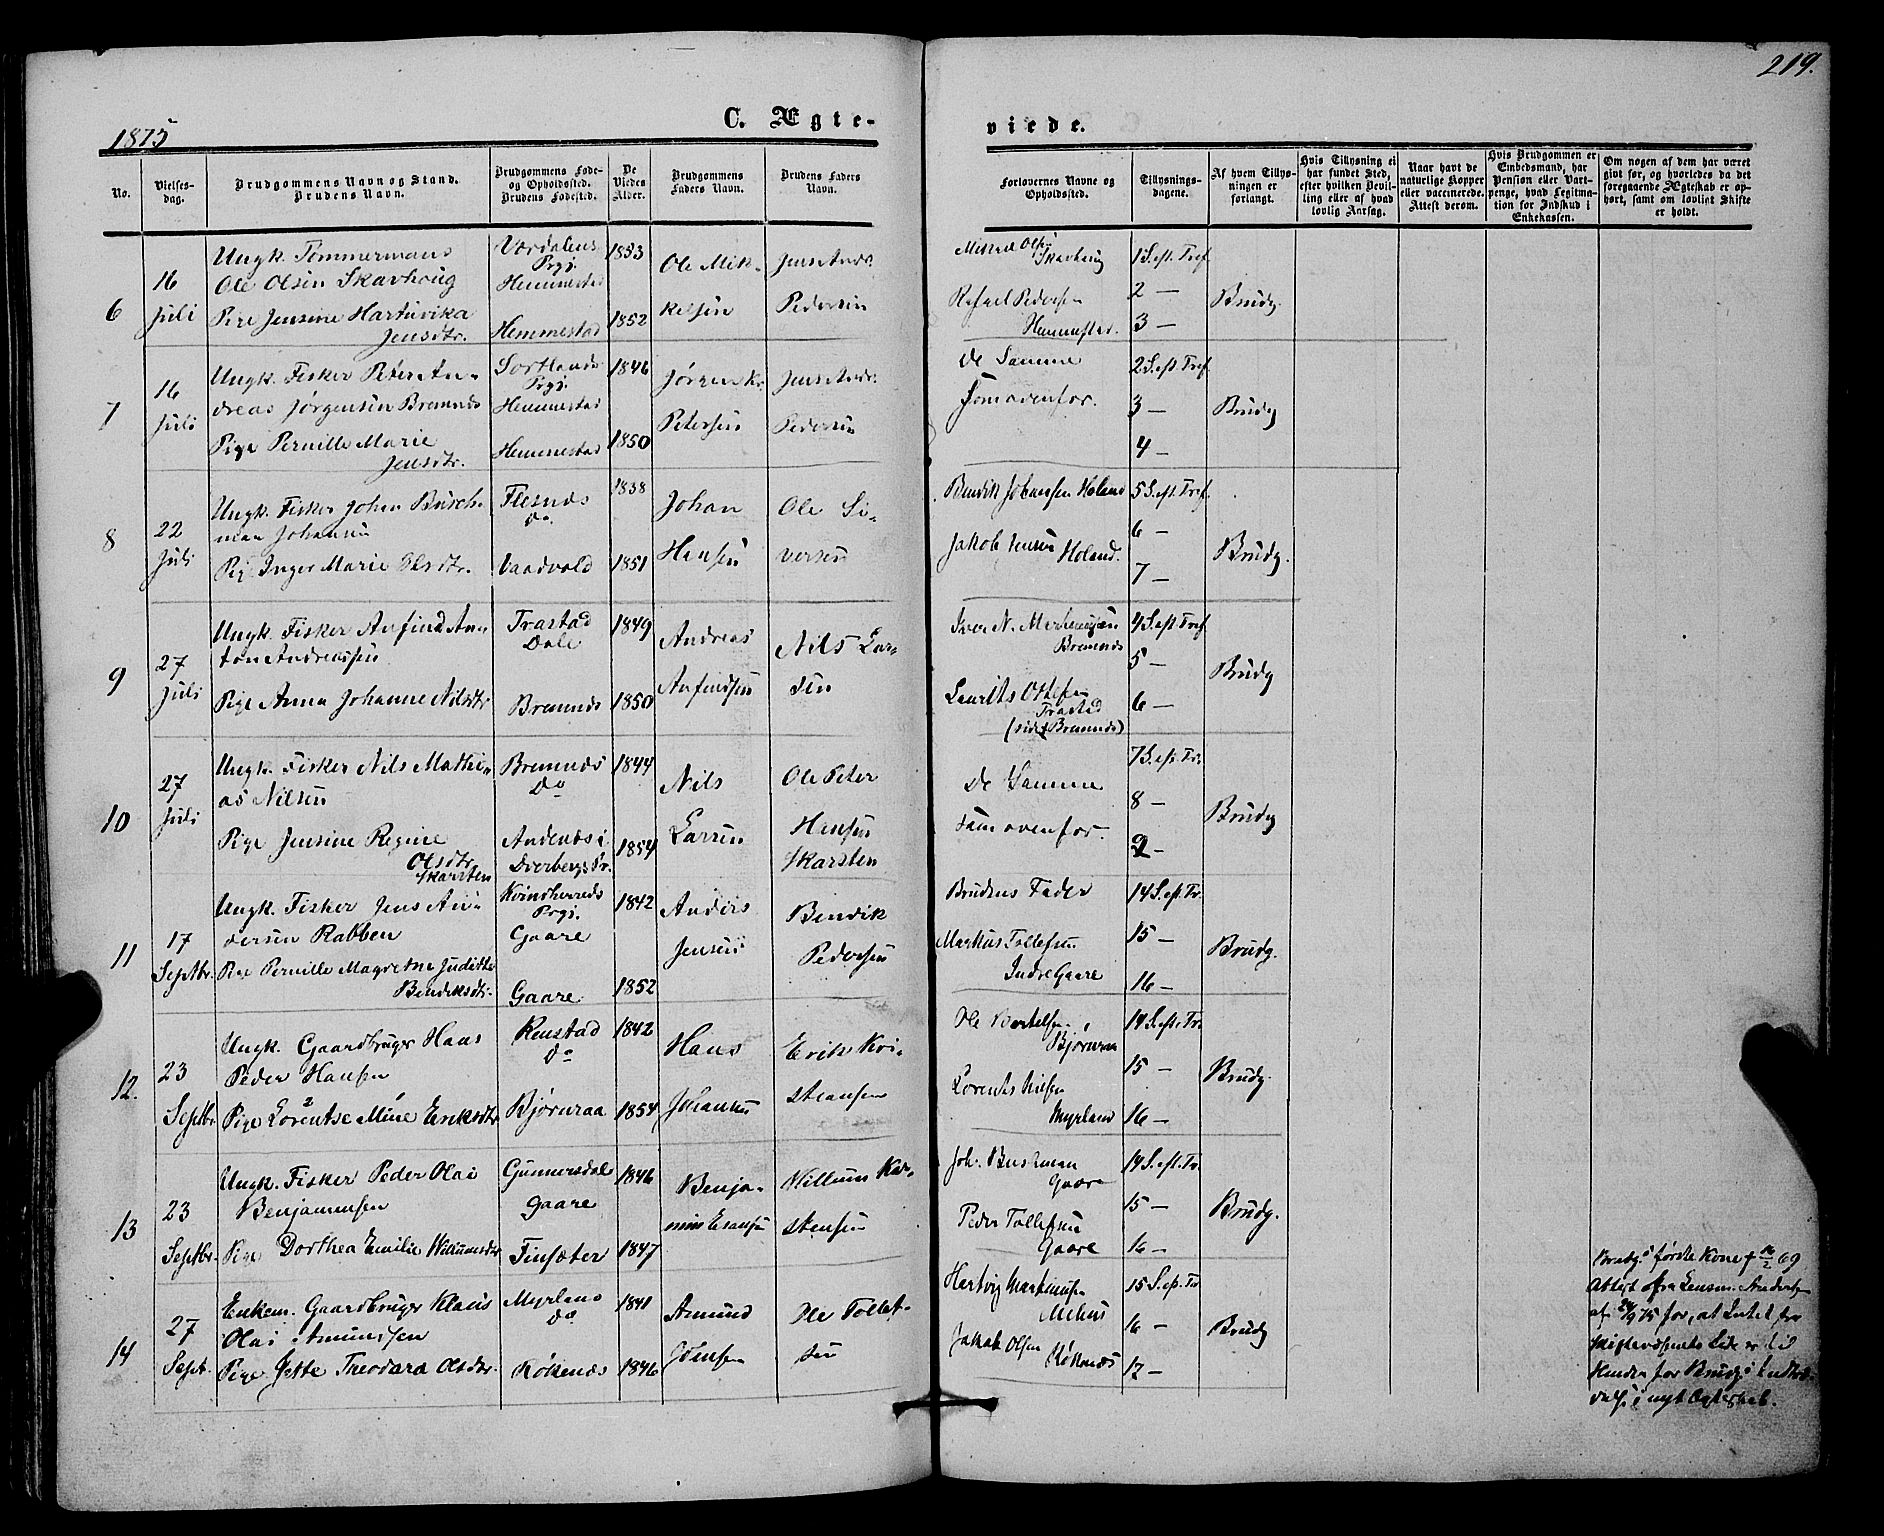 219.
1875
C. Ægte-
viede.
No.
Vielses-
dag.
Brudgommens Navn og Stand.
Brudens Navn.
Brudgommens Føde-
og Opholdssted.
Brudens Fødested.
De
Viedes
Alder.
Brudgommens
Faders Navn.
Brudens Faders
Navn.
Forlovernes Navne og
Opholdssted.
Tillysnings-
dagene.
Af hvem Tillys-
ningen er
forlangt.
Hvis Tillysning ei
har fundet Sted,
efter hvilken Bevil-
ling eller af hvad
lovlig Aarsag.
Naar havt de
naturlige Kopper
eller vaccinerede.
Attest derom.
Hvis Brudgommen er
Embedsmand, har
Pension eller Vart-
penge, hvad Legitima-
tion for Indskud i
Enkekassen.
Om nogen af dem har været
givt før, og hvorledes da det
foregaaende Ægteskab er op-
hørt, samt om lovligt Skifte
er holdt.
6
16
Juli
Ungk. Tømmermand
Ole Olsen Skavhoug
Pige Jensine Hartuvika
Jensdtr.
Værdalens
Prgj.
Hemmestad
Hemmestad
1853
1852
Ole Mik-
kelsen
Jens Andr.
Pedersen
Mikkel Ols.
Skavhoug
Rafael Pedersen
Hemmestad.
1 S. eft. Tref
2 —
3 —
Brudg.
7
16
Juli
Ungk. Fisker Peter An-
dreas Jørgensen Bremnes
Pige Pernille Marie
Jensdtr.
Sortlands
Prgj.
Hemmestad
Hemmestad
1846
1850
Jørgen Kr.
Petersen
Jens Andr.
Pedersen
De Samme
som ovenfor.
2 S. eft. Tref
3 —
4 —
Brudg
8
22
Juli
Ungk. Fisker Johan Busch-
man Johansen
Pig. Inger Marie Olsdtr.
Flesnæs
do.
Vaadvold
1838
1851
Johan
Hansen
Ole Si-
versen
Bendik Johansen Holand
Jakob Jensen
Holand.
5 S. eft. Tref.
6 —
7 —
Brudg.
9
27
Juli
Ungk. Fisker Anfind An-
ton Andreassen
Pige Anna Johanne Nilsdtr
Trastad
Dale
Bremnes
1849
1850
Andreas
Anfindsen
Nils Lar-
sen
Iver N.
Bremnes
Laurits
Trastad
Bremnes)
4 S. eft. Tref
5 —
6 —
Brudg
10
27
Juli
Ungk. Fisker Nils Mathi-
as Nilsen
Pige Jensine Regine
Olsdtr.
Skarsten
Bremnæs
do
Andenæs i
Dverbergs Pr.
1844
1854
Nils
Larsen
Ole Peter
Hansen
Skarsten
De Samme
som ovenfor.
7 S. eft. Tr.
8 —
9 —
Brudg
11
17
Septbr.
Ungk. Fisker Jens An-
dersen Rabben
Pige Pernille Magrethe Judithe
Bendiksdtr.
Kvindherreds
Prgj.
Gaare
Gaare
1842
1852
Anders
Jensen
Bendik
Pedersen
Brudens Fader
Markus Tollefsen
Indre Gaare
14 S. eft. Tr.
15 —
16 —
Brudg.
12.
23
Septbr
Ungk. Gaardbruger Hans
Peder Hansen
Pige Lorentse Mine Eriksdtr
Renstad
do
Bjørnraa
1842
1854
Hans
Johansen
Erik Kri-
stiansen
Ole Bertelsen
Bjørnraa
Lorents Nilsen
Myrland
14 S. eft. Tr.
15 —
16 —
Brudg.
13
23
Septbr.
Ungk. Fisker Peder Olai
Benjaminsen
Pige Dorthea Emilie Willumsdtr
Gunnersdale
Gaare
Finsæter
1846
1847
Benja-
min
Willum Kri-
stensen
Joh. Buschman
Gaare
Peder Tollefsen
Gaare
14 S. eft. Tr.
15 —
16 —
Brudg.
14
27
Sept.
Enkem. Gaardbruger Klaus
Olai Amundsen
Pige Jette Theodora Olsdtr.
Myrland
do
Røkenæs
1841
1846
Amund
Jensen
Ole Tollef-
sen
Hartvig Martinusen
Melaus
Jakob Olsen
Røkenæs
15 S. eft. Tr
16 —
17 —
Brudg
Brudg.s første Kone † 16/2 69
Attest fra Lensm.
af 24/9 75 for, at Intet fra
Skiftevæsenets Side er til
Hinder for Brudg.s Indtræ-
delse i nyt Ægteskab.